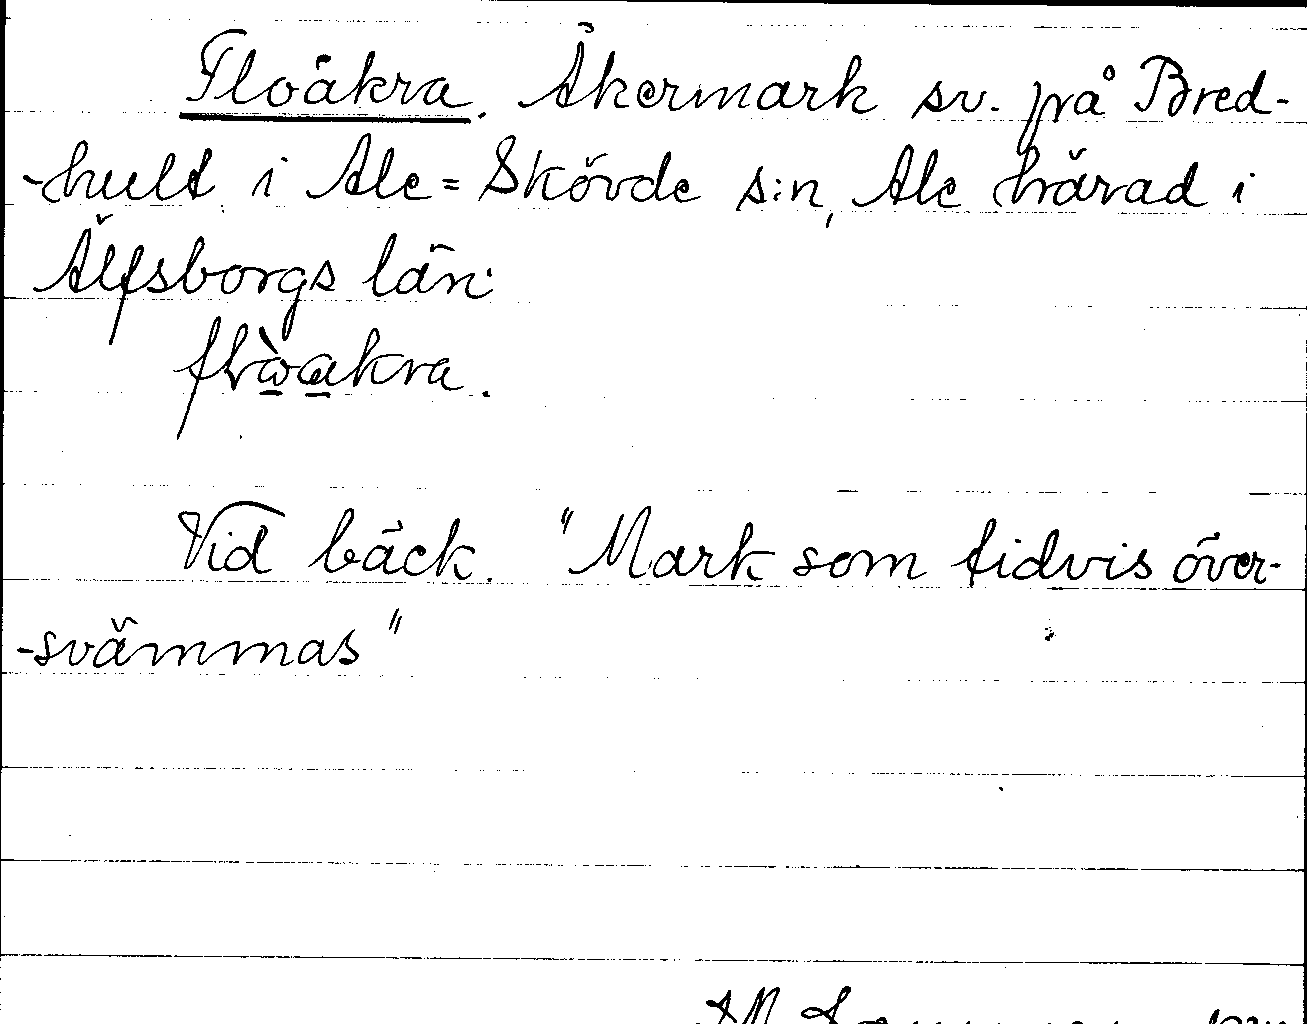 Floåkra. Åkermark sv. på Bred-
-hult i Ale=Skövde s:n, Ale härad i
Älfsborgs län.
Vid bäck. "Mark som tidvis över-
-svämmas"